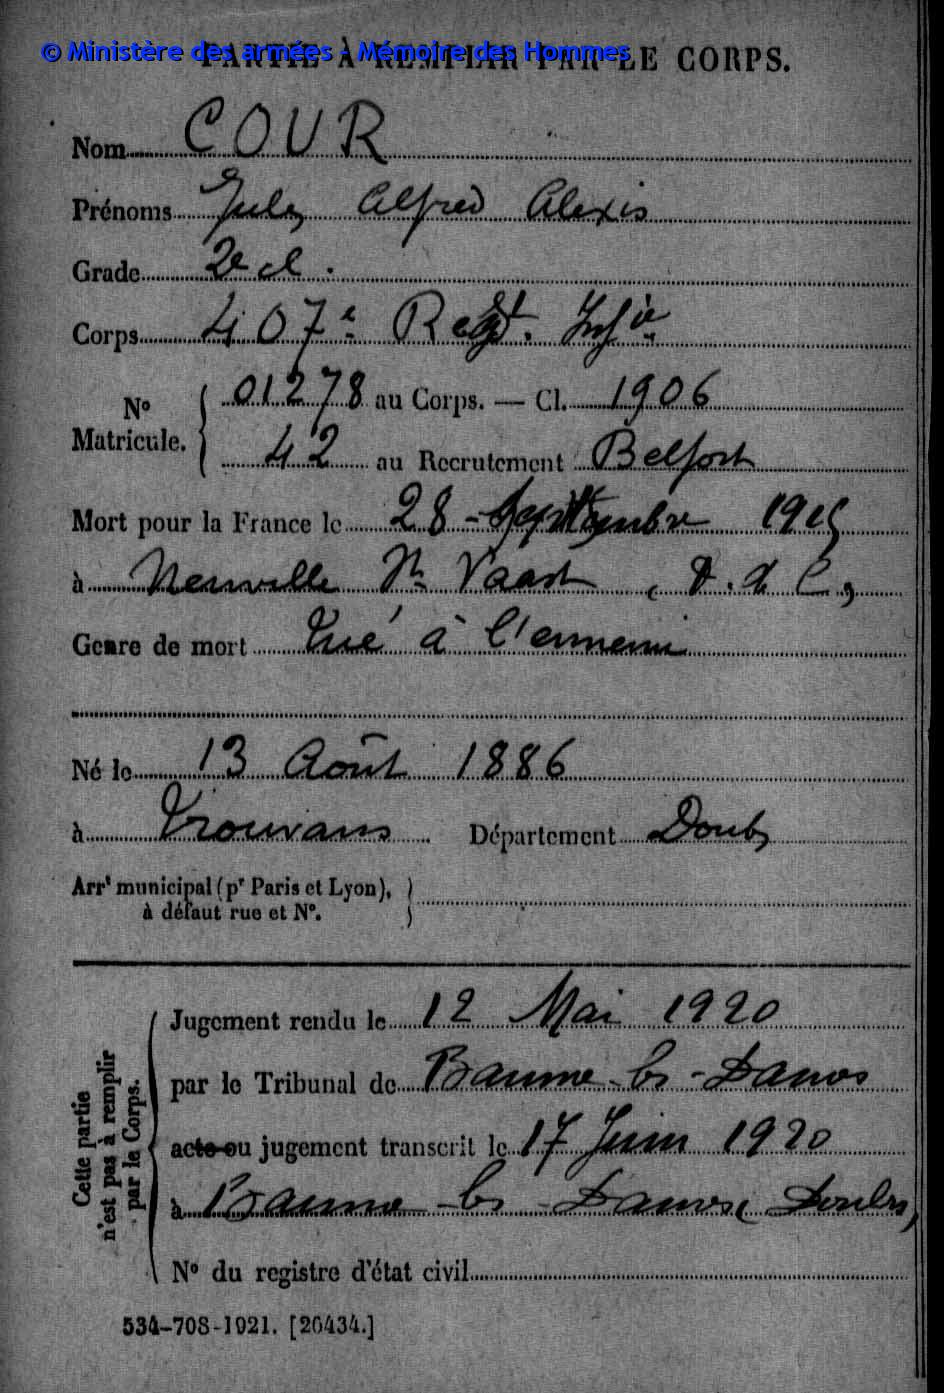 © Ministère des armées - Mémoire des Hommes
PARTIE À REMPLIR PAR LE CORPS.
Nom COUR
Prénoms Jules Alfred Alexis
Grade 2e cl.
Corps 407e Regt. Infie
No Matricule. 01278 au Corps. — Cl. 1906
42 au Recrutement Belfort
Mort pour la France le 28 - Septembre 1915
à Neuville St Vaast (P. d C.)
Genre de mort Tué à l'ennemi
Né le 13 Août 1886
à Trouvans Département Doubs
Arrt municipal (pr Paris et Lyon),
à défaut rue et No.
Cette partie n'est pas à remplir par le Corps.
Jugement rendu le 12 Mai 1920
par le Tribunal de Baume-les-Dames
acte ou jugement transcrit le 17 Juin 1920
à Baume-les-Dames (Doubs)
No du registre d'état civil
534-708-1921. [26434.]